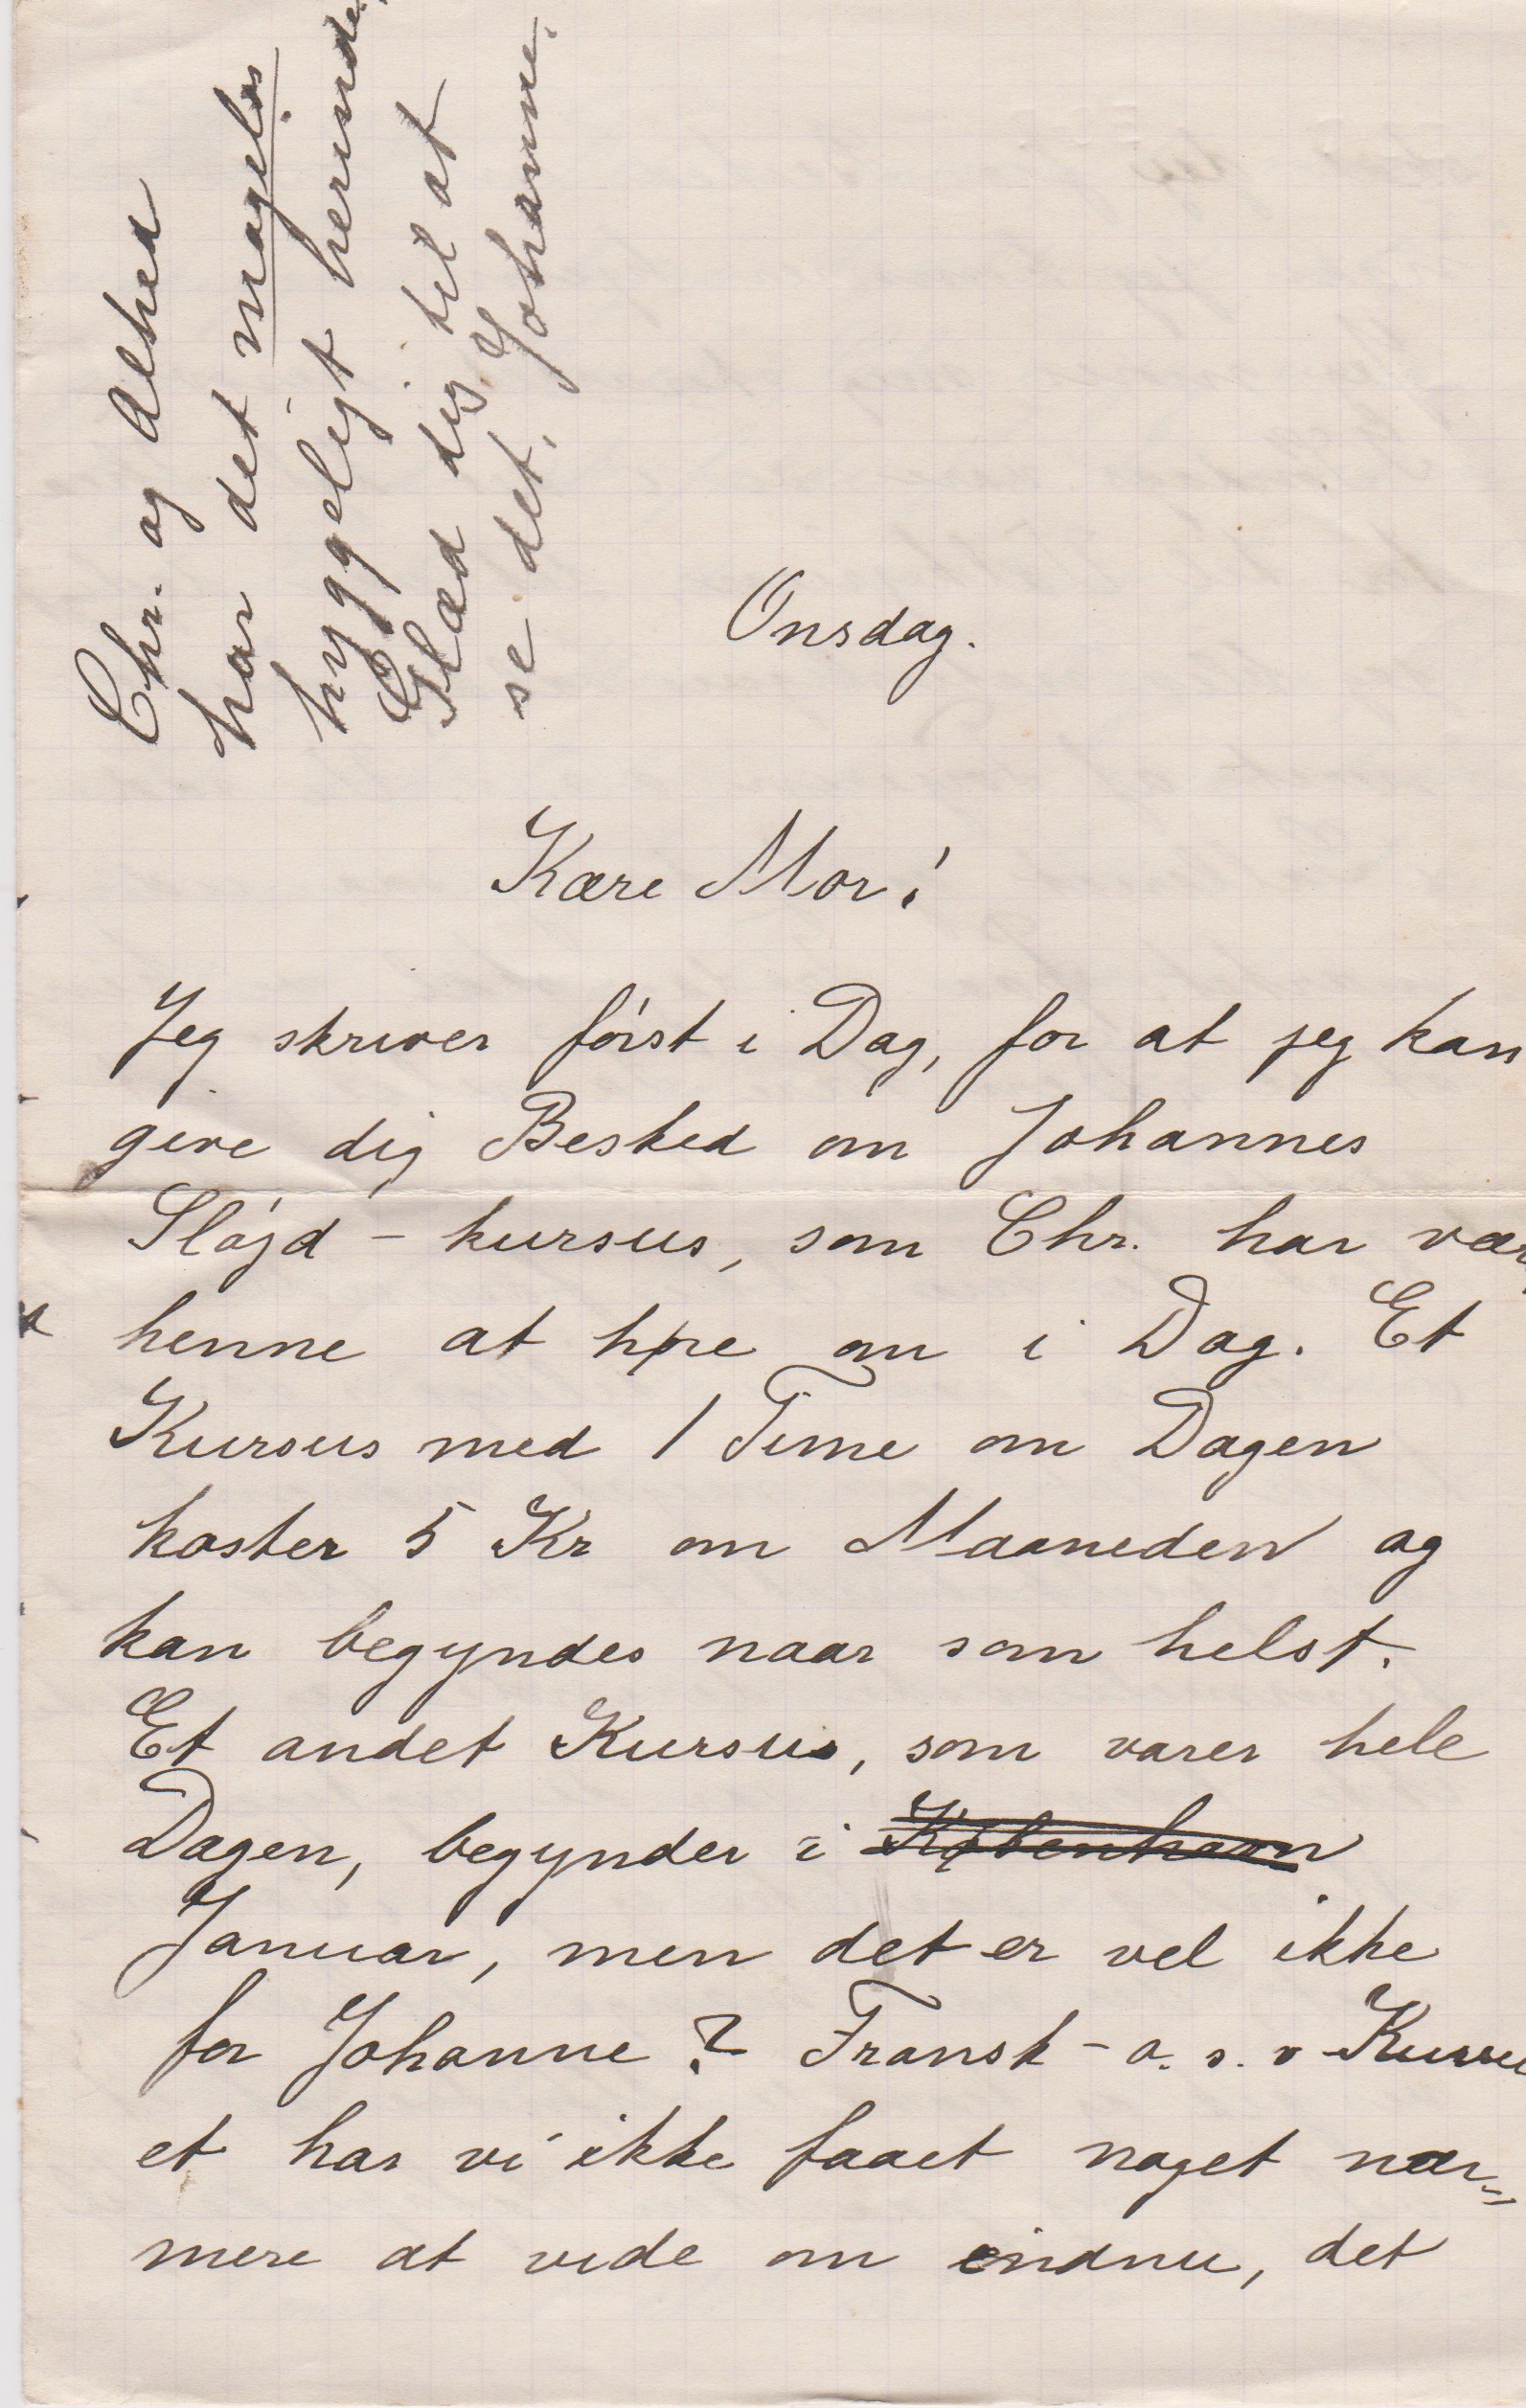 Chr. og Alhed
har det mageløs
hyggeligt herinde,
Glæd dig til at
se det. Johanne.
Onsdag.
Kære Mor!
Jeg skriver først i Dag, for at jeg kan
give dig Besked om Johannes
Sløjd-kursus, som Chr. har vær
henne at høre om i Dag. Et
Kursus med 1 Time om Dagen
koster 5 Kr om Maaneden og
kan begyndes naar som helst.
Et andet Kursus, som varer hele
Dagen, begynder i København
Januar, men det er vel ikke
for Johanne? Fransk- o. s. v Kursu
et har vi ikke faaet noget nær=
mere at vide om endnu, det